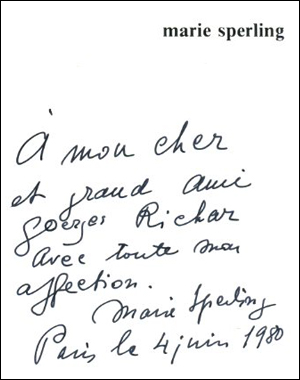 marie sperling
À mon cher
et grand ami
Georges Richar
Avec toute mon
affection.
Marie Sperling
Paris le 4 juin 1980